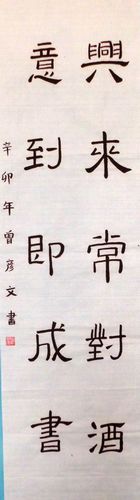 興來常對酒
意到即成書
辛卯年曾彥文書